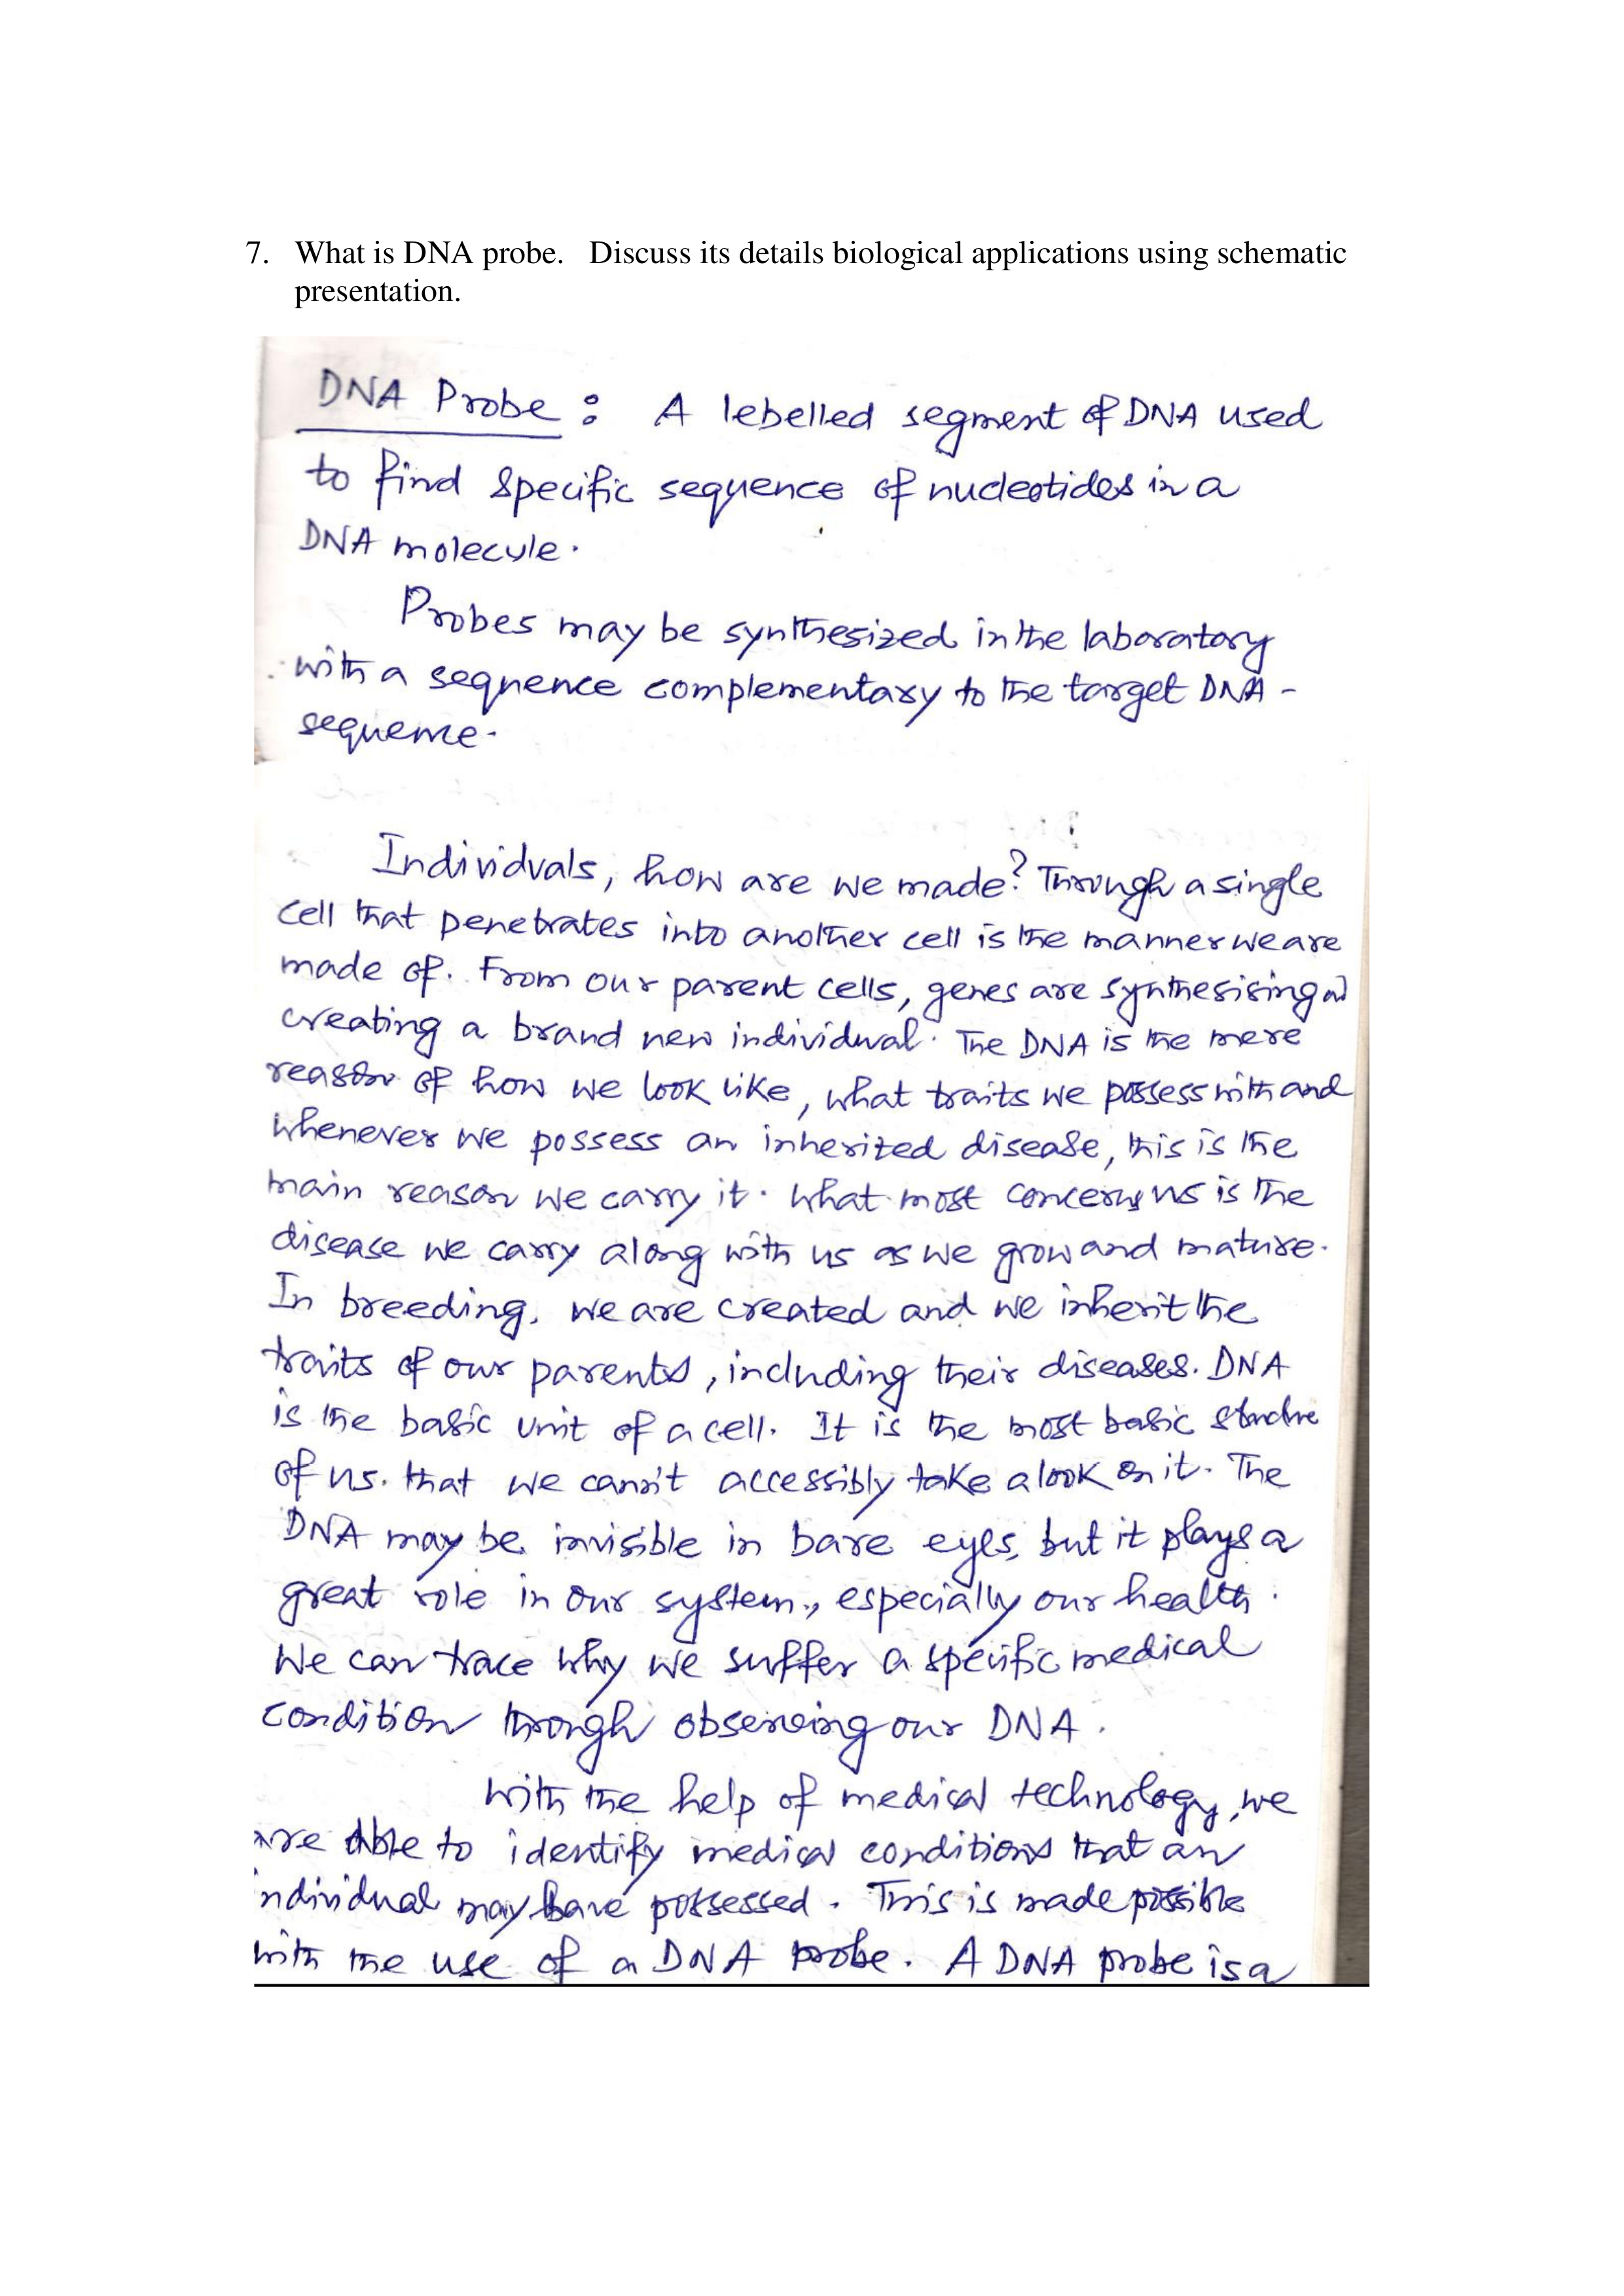 7. What is DNA probe. Discuss its details biological applications using schematic
presentation.
DNA Probe : A lebelled segment of DNA used
to find specific sequence of nucleotides in a
DNA molecule.
Probes may be synthesized in the laboratory
with a sequence complementary to the target DNA -
sequence.
Individuals, how are we made? Through a single
cell that penetrates into another cell is the manner we are
made of. From our parent cells, genes are synthesising
creating a brand new individual. The DNA is the mere
reason of how we look like, what traits we possess with and
whenever we possess an inherited disease, this is the
main reason we carry it. What most concerns us is the
disease we carry along with us as we grow and mature.
In breeding, we are created and we inherit the
traits of our parents, including their diseases. DNA
is the basic unit of a cell. It is the most basic structure
of us. that we cann't accessibly take a look on it. The
DNA may be invisible in bare eyes, but it plays a
great role in our system, especially our health.
We can trace why we suffer a specific medical
condition through observing our DNA.
With the help of medical technology, we
are able to identify medical conditions that an
individual may have possessed. This is made possible
with the use of a DNA probe. A DNA probe is a